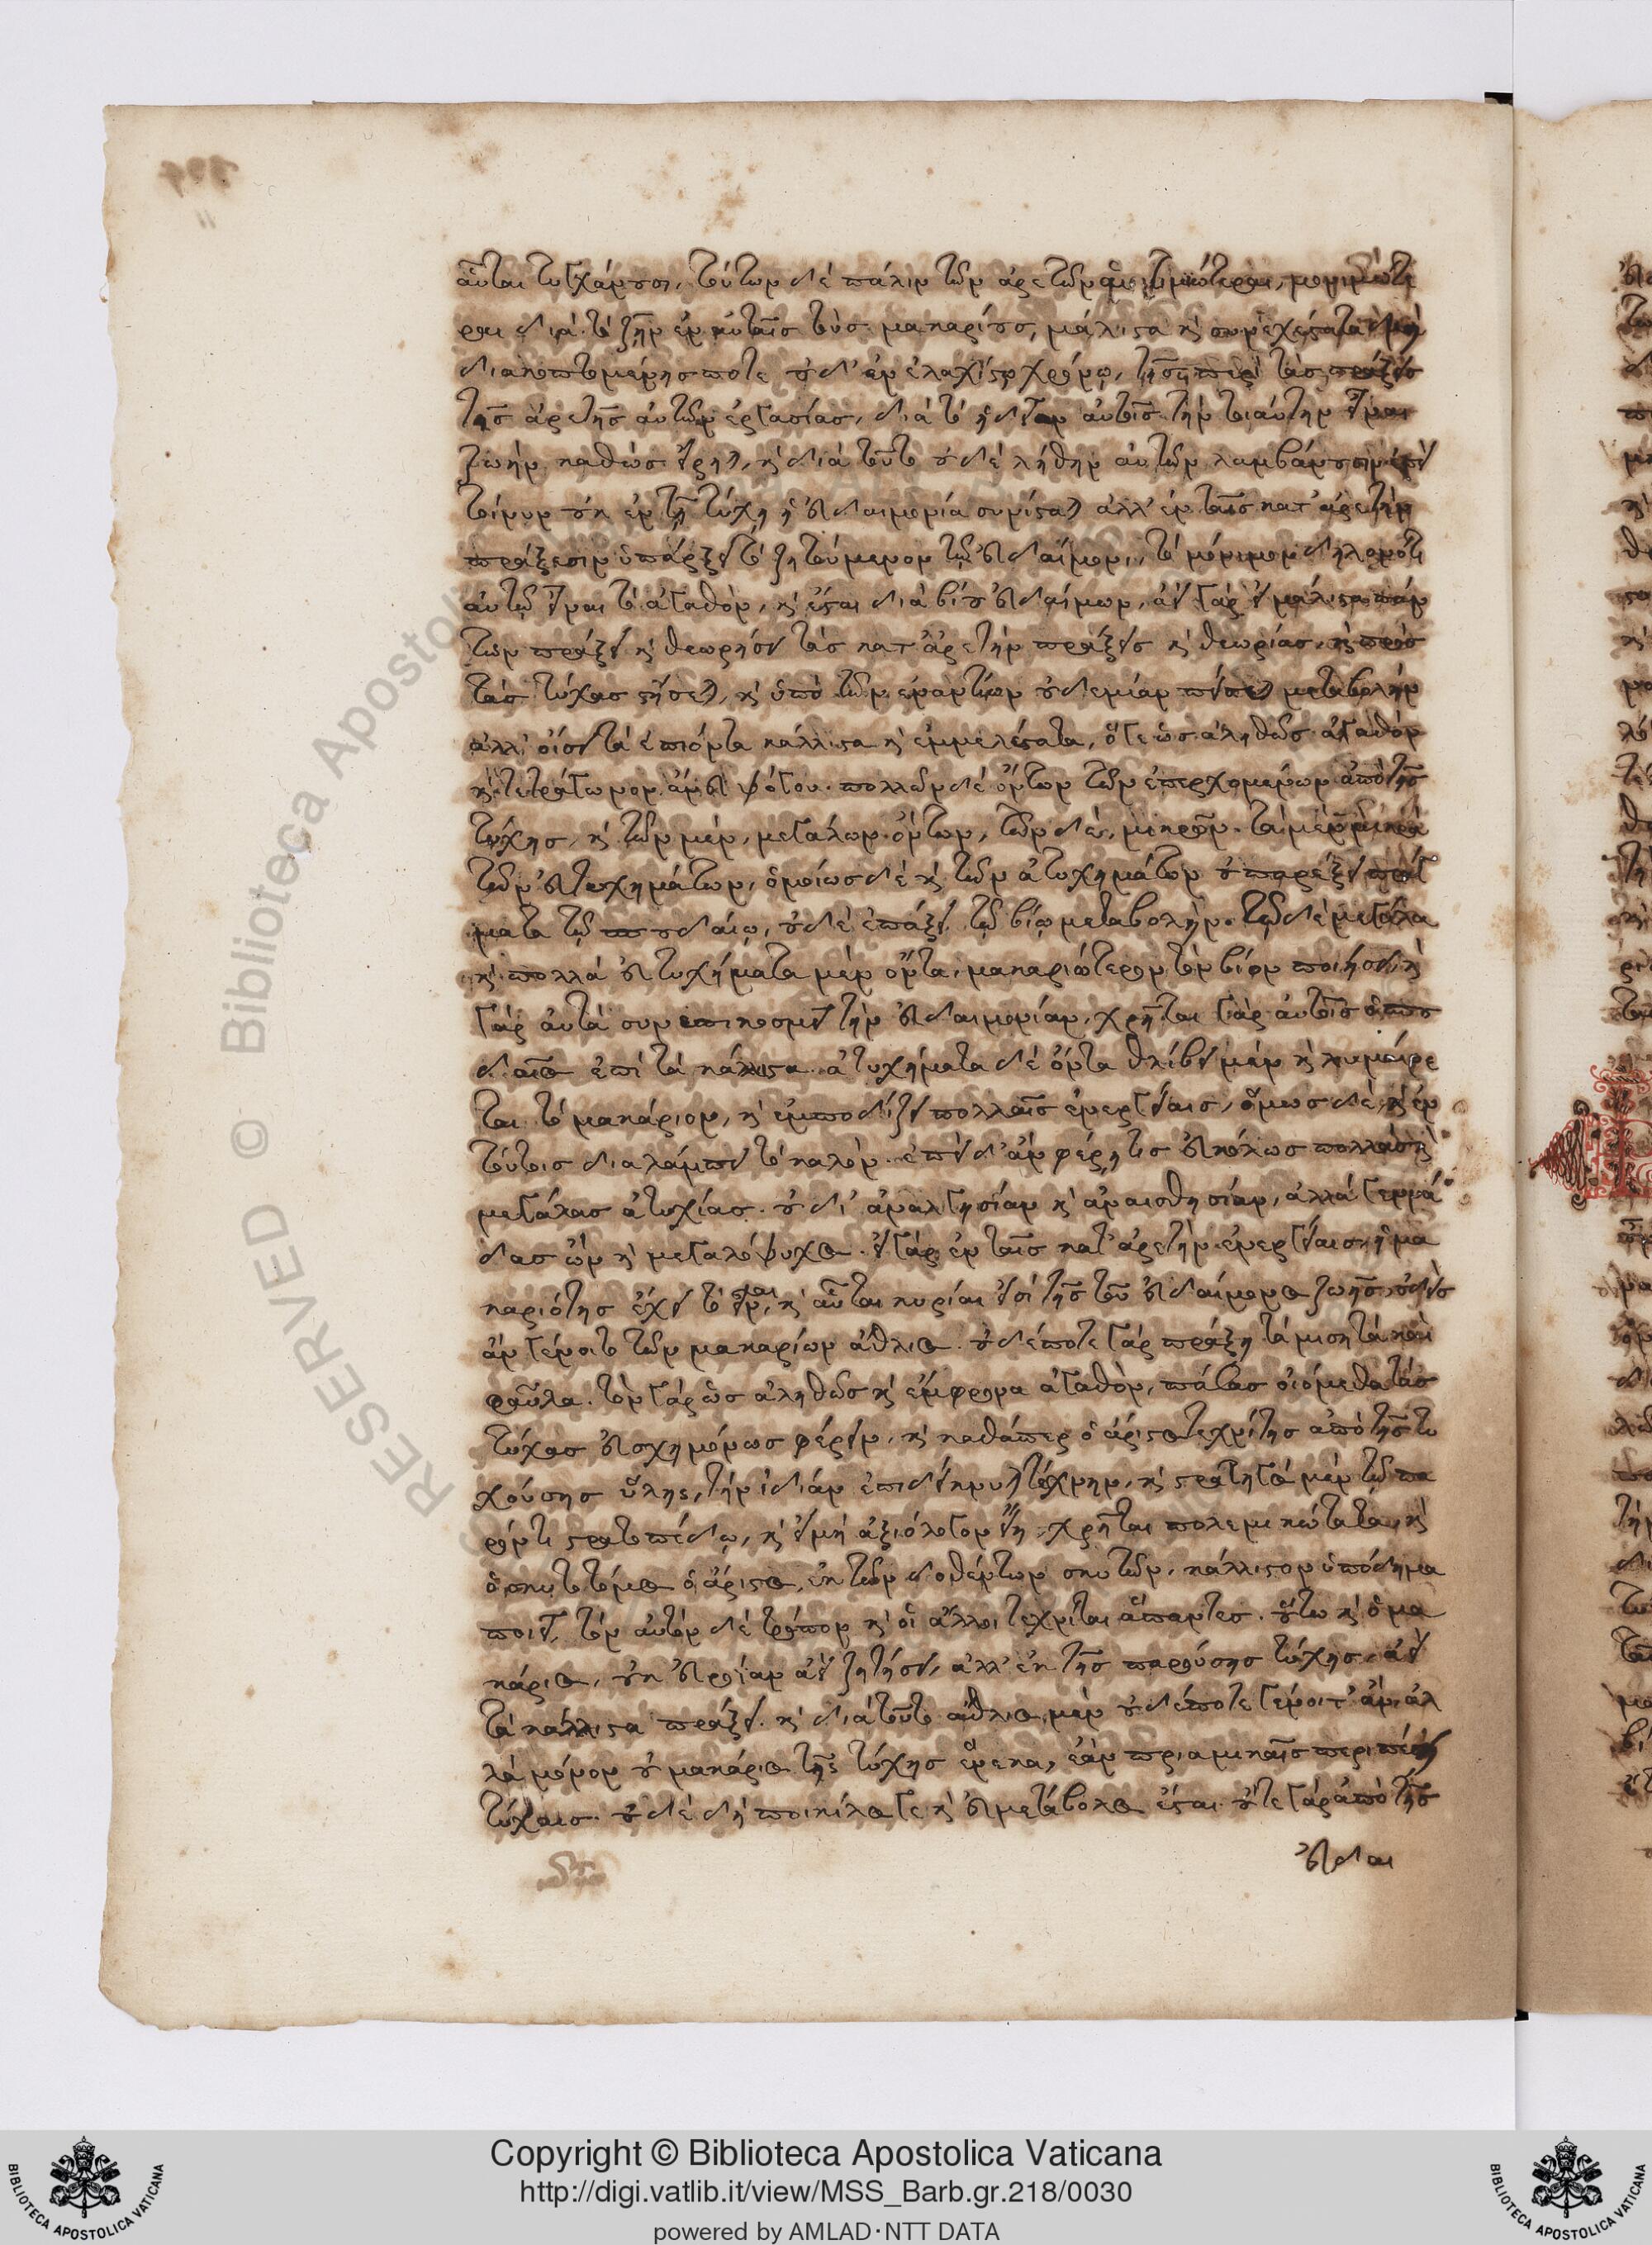 αὗται τυγχάνουσι, τούτων δὲ πάλιν τῶν ἀρετῶν αἱ τιμιώτεραι, μονιμώτε
ραι διὰ τὸ ζῆν ἐν αὐταῖς τοὺς μακαρίους, μάλιστα καὶ συνεχέστατα
διακοπτομένης ποτε οὐδ' ἐν ἐλαχίστῳ χρόνῳ, τῆς περὶ τὰς πράξεις
τῆς ἀρετῆς αὐτῶν ἐργασίας, διὰ τὸ αὐτοῖς τὴν τοιαύτην εἶναι
ζωὴν, καθὼς εἴρηται, καὶ διὰ τοῦτο οὐδὲ λήθην αὐτῶν λαμβάνουσιν
τοίνυν οὐκ ἐν τῇ τύχῃ ἡ εὐδαιμονία συνίσταται ἀλλ' ἐν ταῖς κατ' ἀρετὴν
πράξεσιν ὑπάρξει τὸ ζητούμενον τῷ εὐδαίμονι, τὸ μόνιμον δηλονότι
αὐτῷ εἶναι τὸ ἀγαθὸν, καὶ ἔσται διὰ βίου εὐδαίμων, ἀεὶ γὰρ ἢ μάλιστα πάν
των πράξει καὶ θεωρήσει τὰς κατ' ἀρετὴν πράξεις καὶ θεωρίας, καὶ πρὸς
τὰς τύχας στήσεται, καὶ ὑπὸ τῶν ἐναντίων οὐδεμίαν μεταβολὴν
ἀλλ' οἴσει τὰ ἐπιόντα κάλλιστα καὶ ἐμμελέστατα, ὅγε ὡς ἀληθῶς ἀγαθὸν
καὶ τετράγωνον ἄνευ ψόγου. πολλῶν δὲ ὄντων τῶν ἐπερχομένων ἀπὸ τῆς
τύχης, καὶ τῶν μὲν, μεγάλων ὄντων, τῶν δὲ, μικρῶν. τὰ μὲν μικρὰ
τῶν εὐτυχημάτων, ὁμοίως δὲ καὶ τῶν ἀτυχημάτων οὐ παρέξει πράγ
ματα τῷ σπουδαίῳ, οὐδὲ ἐπάξει τῷ βίῳ μεταβολὴν. τὰ δὲ μεγάλα
καὶ πολλὰ εὐτυχήματα μὲν ὄντα, μακαριώτερον τὸν βίον ποιήσει, καὶ
γὰρ αὐτὰ συνεπικοσμεῖ τὴν εὐδαιμονίαν, χρῆται γὰρ αὐτοῖς ὁ σπου
δαῖος ἐπὶ τὰ κάλλιστα. ἀτυχήματα δὲ ὄντα θλίβει μὲν καὶ λυμαίνε
ται τὸ μακάριον, καὶ ἐμποδίζει πολλαῖς ἐνεργείαις, ὅμως δὲ, καὶ ἐν
τούτοις διαλάμπει τὸ καλὸν. ἐπειδ' ἂν φέρῃ τις εὐκόλως πολλὰς καὶ
μεγάλας ἀτυχίας. οὐ δι' ἀναλγησίαν καὶ ἀναισθησίαν, ἀλλὰ γεννά
δας ὢν καὶ μεγαλόψυχος. εἰ γὰρ ἐν ταῖς κατ' ἀρετὴν ἐνεργείαις ἡ μα
καριότης ἔχει τὸ εἶναι, καὶ αὗται κυρίαι εἰσὶ τῆς τοῦ εὐδαίμονος ζωῆς, οὐδεὶς
ἂν γένοιτο τῶν μακαρίων ἄθλιος. οὐδέποτε γὰρ πράξῃ τὰ μισητὰ καὶ
φαῦλα. τὸν γὰρ ὡς ἀληθῶς καὶ ἔμφρονα ἀγαθὸν, πάσας οἰόμεθα τὰς
τύχας εὐσχημόνως φέρειν, καὶ καθάπερ ὁ ἄριστος τεχνίτης ἀπὸ τῆς τυ
χούσης ὕλης, τὴν ἰδίαν ἐπιδείκνυται τέχνην, καὶ στρατηγὸς μὲν τῷ πα
ρόντι στρατοπέδῳ, καὶ εἰ μὴ ἀξιόλογον εἴη, χρῆται πολεμικώτατα, καὶ
ὁ σκυτοτόμος ὁ ἄριστος, ἐκ τῶν δοθέντων σκυτῶν, κάλλιστον ὑπόδημα
ποιεῖ, τὸν αὐτὸν δὲ τρόπον καὶ οἱ ἄλλοι τεχνῖται ἅπαντες. οὕτω καὶ ὁ μα
κάριος, οὐκ εὔροιαν ἀεὶ ζητήσει, ἀλλ' ἐκ τῆς παρούσης τύχης, ἀεὶ
τὰ κάλλιστα πράξει. καὶ διὰ τοῦτο ἄθλιος μὲν οὐδέποτε γένοιτ' ἂν, ἀλ
λὰ μόνον οὐ μακάριος τῆς τύχης ἕνεκα, ἐὰν πριαμικαῖς περιπέσῃ
τύχαις. οὐδὲ δὴ ποικίλος γε καὶ εὐμετάβολος ἔσται. οὔτε γὰρ ἀπὸ τῆς
εὐδαι
Copyright © Biblioteca Apostolica Vaticana
http://digi.vatlib.it/view/MSS_Barb.gr.218/0030
powered by AMLAD·NTT DATA